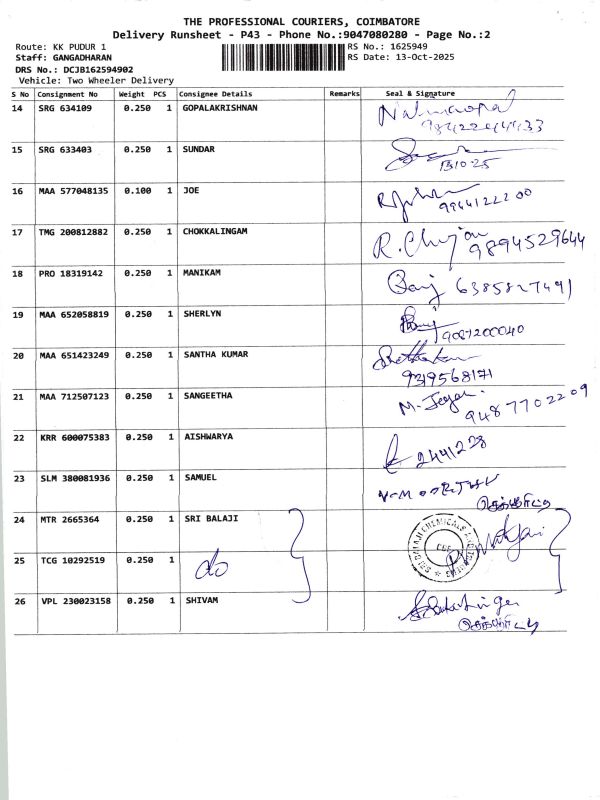 THE PROFESSIONAL COURIERS, COIMBATORE
Delivery Runsheet - P43 - Phone No.:9047080280 - Page No.:2
Route: KK PUDUR 1 RS No.: 1625949
Staff: GANGADHARAN RS Date: 13-Oct-2025
DRS No.: DCJB162594902
Vehicle: Two Wheeler Delivery
S No Consignment No Weight PCS Consignee Details Remarks Seal & Signature
14 SRG 634109 0.250 1 GOPALAKRISHNAN
15 SRG 633403 0.250 1 SUNDAR
131025
16 MAA 577048135 0.100 1 JOE
9944122200
17 TMG 200812882 0.250 1 CHOKKALINGAM
9894529644
18 PRO 18319142 0.250 1 MANIKAM
6385827491
19 MAA 652058819 0.250 1 SHERLYN
9087200040
20 MAA 651423249 0.250 1 SANTHA KUMAR
9319568171
21 MAA 712507123 0.250 1 SANGEETHA
9487702209
22 KRR 600075383 0.250 1 AISHWARYA
2441228
23 SLM 380081936 0.250 1 SAMUEL
24 MTR 2665364 0.250 1 SRI BALAJI
25 TCG 10292519 0.250 1 do
26 VPL 230023158 0.250 1 SHIVAM